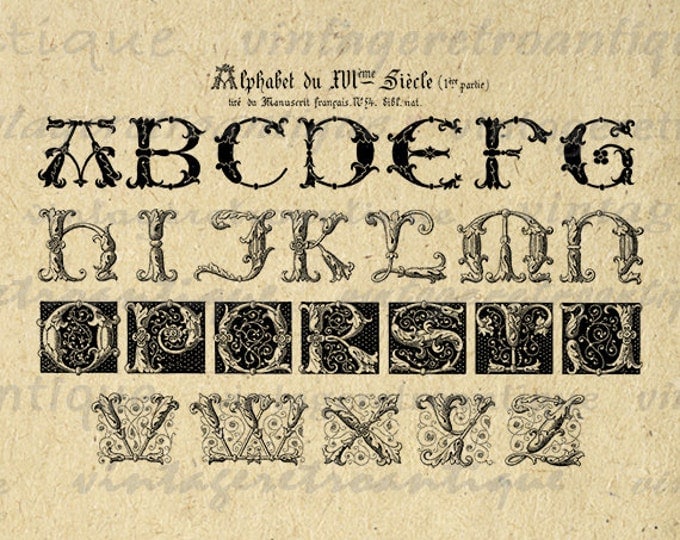 Alphabet du XVIème Siècle (1ère partie)
tiré du Manuscrit français. No 54. Bibl. nat.
A B C D E F G
H I J K L M N
O P Q R S T U
V W X Y Z
vintageretroantique